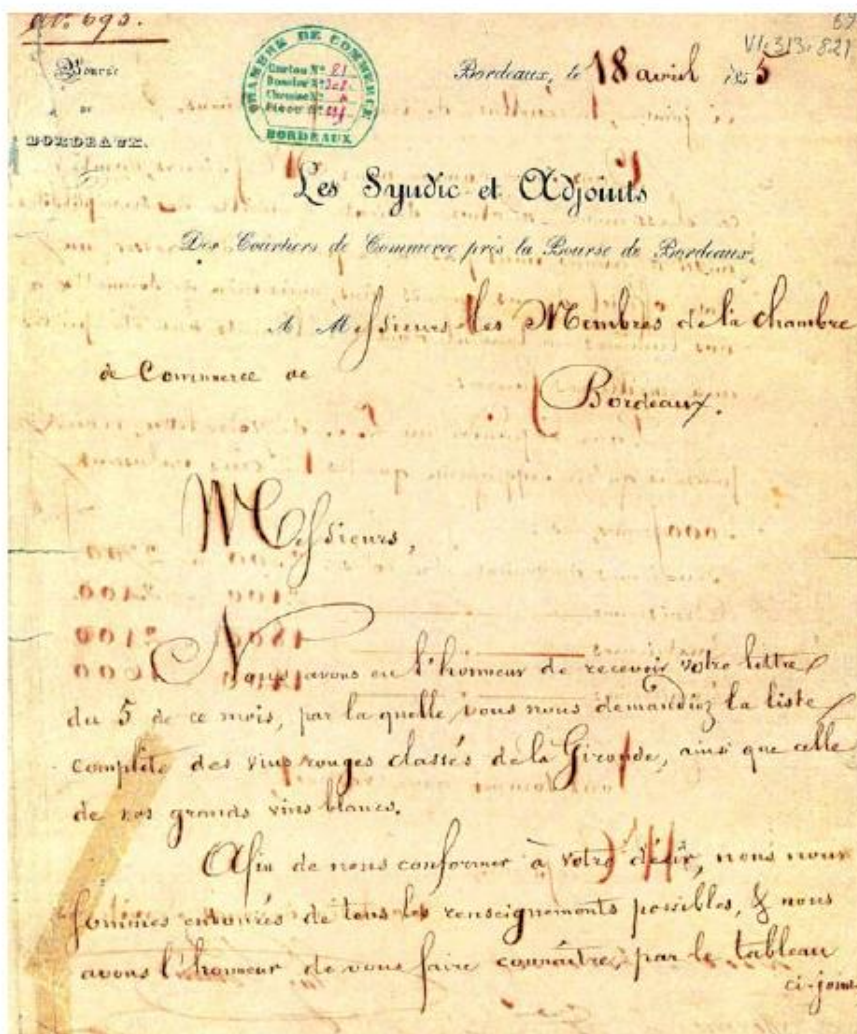 No. 693.
VI-313-821
Bourse
DE
BORDEAUX.
CHAMBRE DE COMMERCE
Carton No 21
Dossier No
Chemise No
Pièce No
BORDEAUX
Bordeaux, le 18 avril 1855
Les Syndic et Adjoints
Des Courtiers de Commerce près la Bourse de Bordeaux,
A Messieurs les Membres de la chambre
de Commerce de
Bordeaux.
Messieurs,
Nous avons eu l'honneur de recevoir votre lettre
du 5 de ce mois, par la quelle vous nous demandiez la liste
complète des vins rouges classés de la Gironde, ainsi que celle
de nos grands vins blancs.
Afin de nous conformer à votre désir, nous nous
sommes entourés de tous les renseignements possibles, & nous
avons l'honneur de vous faire connaître, par le tableau
ci-joint